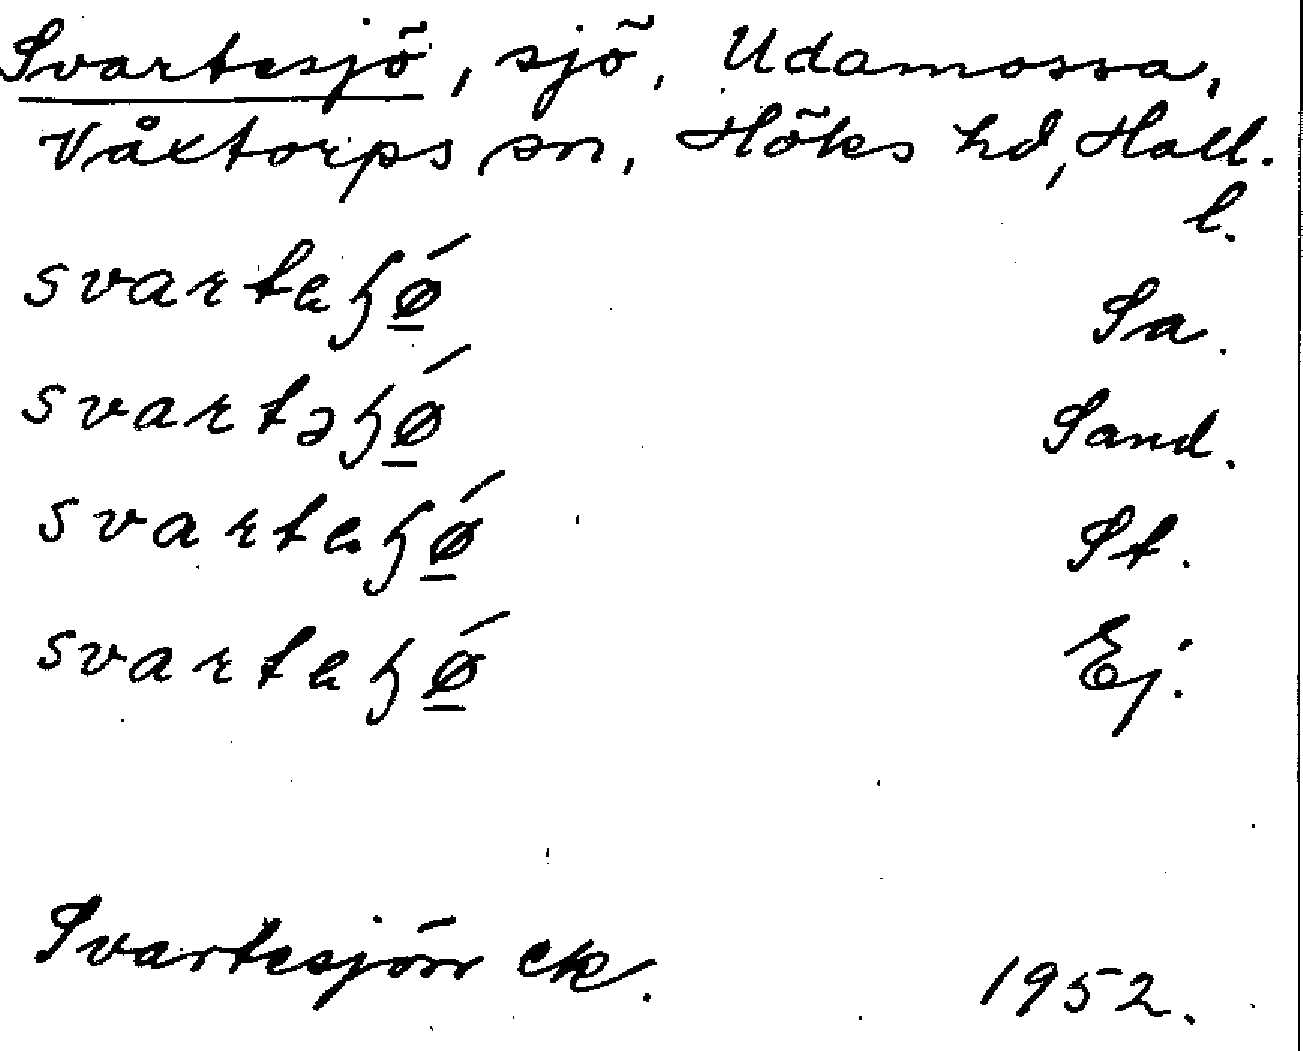 Svartesjö, sjö, Udamossa,
Våxtorps sn, Höks hd, Hall.
l.
svarteɧǿ̲ Sa.
svartəɧǿ̲ Sand.
svarteɧǿ̲ St.
svarteɧǿ̲ Ej.
Svartesjön ek. 1952.